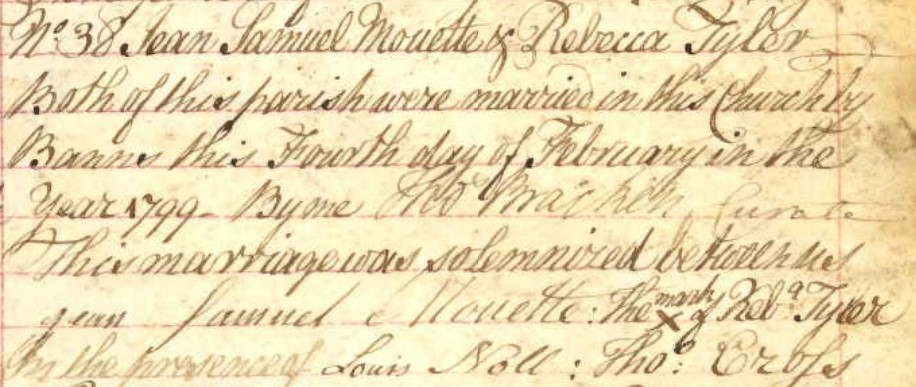 No. 38 Jean Samuel Mouette & Rebecca Tyler
Both of this parish were married in this Church by
Banns this Fourth day of February in the
Year 1799 - By me Thos. Bracken, Curate
This marriage was solemnized between us
jean Samuel Mouette : The mark X of Reba. Tyler
In the presence of Louis Noll : Thos: Crofs